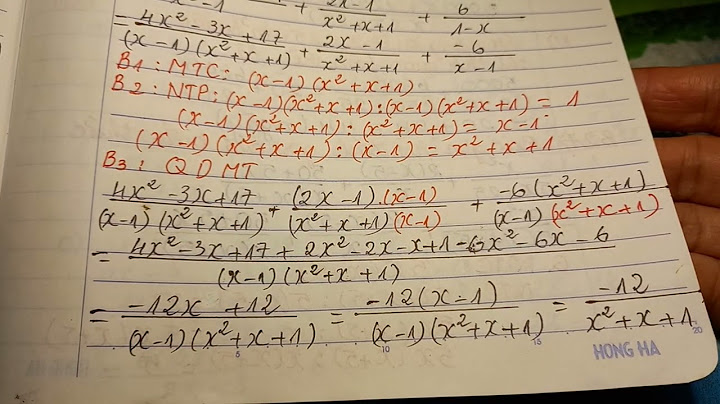 x²+x+1 + 6/(1-x)
= (4x²-3x+17)/((x-1)(x²+x+1)) + (2x-1)/(x²+x+1) + (-6)/(x-1)
B1: MTC: (x-1)(x²+x+1)
B2: NTP: (x-1)(x²+x+1):(x-1)(x²+x+1) = 1
(x-1)(x²+x+1):(x²+x+1) = x-1
(x-1)(x²+x+1):(x-1) = x²+x+1
B3: QDMT
(4x²-3x+17)/((x-1)(x²+x+1)) + ((2x-1).(x-1))/((x²+x+1)(x-1)) + (-6(x²+x+1))/((x-1)(x²+x+1))
= (4x²-3x+17+2x²-2x-x+1-6x²-6x-6)/((x-1)(x²+x+1))
= (-12x+12)/((x-1)(x²+x+1)) = (-12(x-1))/((x-1)(x²+x+1)) = (-12)/(x²+x+1)
5 10 15 20
HONG HA